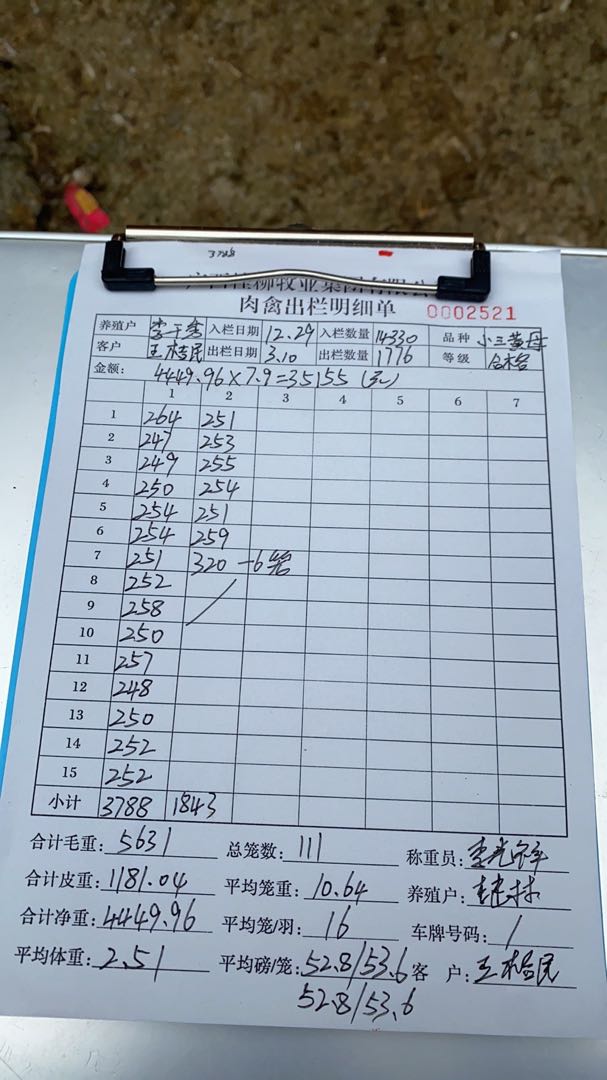 3788
肉禽出栏明细单 0002521
养殖户 入栏日期 12.29 入栏数量 14330 品种 小三黄母
客户 王格民 出栏日期 3.10 出栏数量 1776 等级 合格
金额: 4449.96×7.9=35155(元)
1 2 3 4 5 6 7
1 264 251
2 247 253
3 249 255
4 250 254
5 254 251
6 254 259
7 251 320 -6笼
8 252
9 258
10 250
11 257
12 248
13 250
14 252
15 252
小计 3788 1843
合计毛重: 5631 总笼数: 111 称重员:
合计皮重: 1181.04 平均笼重: 10.64 养殖户:
合计净重: 4449.96 平均笼/羽: 16 车牌号码: /
平均体重: 2.51 平均磅/笼: 52.8/53.6 客户: 王格民
52.8/53.6